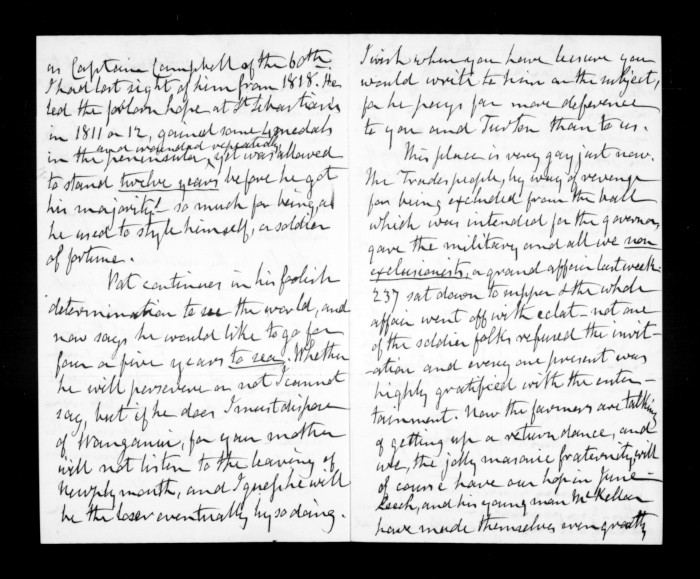 as Captain Campbell of the 60th.
I had lost sight of him from 1818. He
led the forlorn hope at St Sebastians
in 1811 or 12, gained some 4 medals
and wounded repeatedly
in the peninsula, yet was allowed
to stand twelve years before he got
his majority! so much for being, as
he used to style himself, a soldier
of fortune.
Pat continues in his foolish
determination to see the world, and
now says he would like to go for
four or five years to sea. Whether
he will persevere or not I cannot
say, but if he does I must dispose
of Wanganui, for your mother
will not listen to the leaving of
New Plymouth, and I guess he will
be the loser eventually by so doing.
I wish when you have leisure you
would write to him on the subject,
for he pays far more deference
to you and Turton than to us.
This place is very gay just now.
The Tradespeople, by way of revenge
for being excluded from the ball
which was intended for the governor,
gave the military and all we non
exclusionests, a grand affair last week.
237 sat down to supper & the whole
affair went off with eclat - not one
of the soldier folks refused the invit-
ation and every one present was
highly gratified with the enter-
tainment. Now the farmers are talking
of getting up a return dance, and
we, the jolly masonic fraternity, will
of course have our hop in June -
Leech, and his young man McKellar
have made themselves even greatly